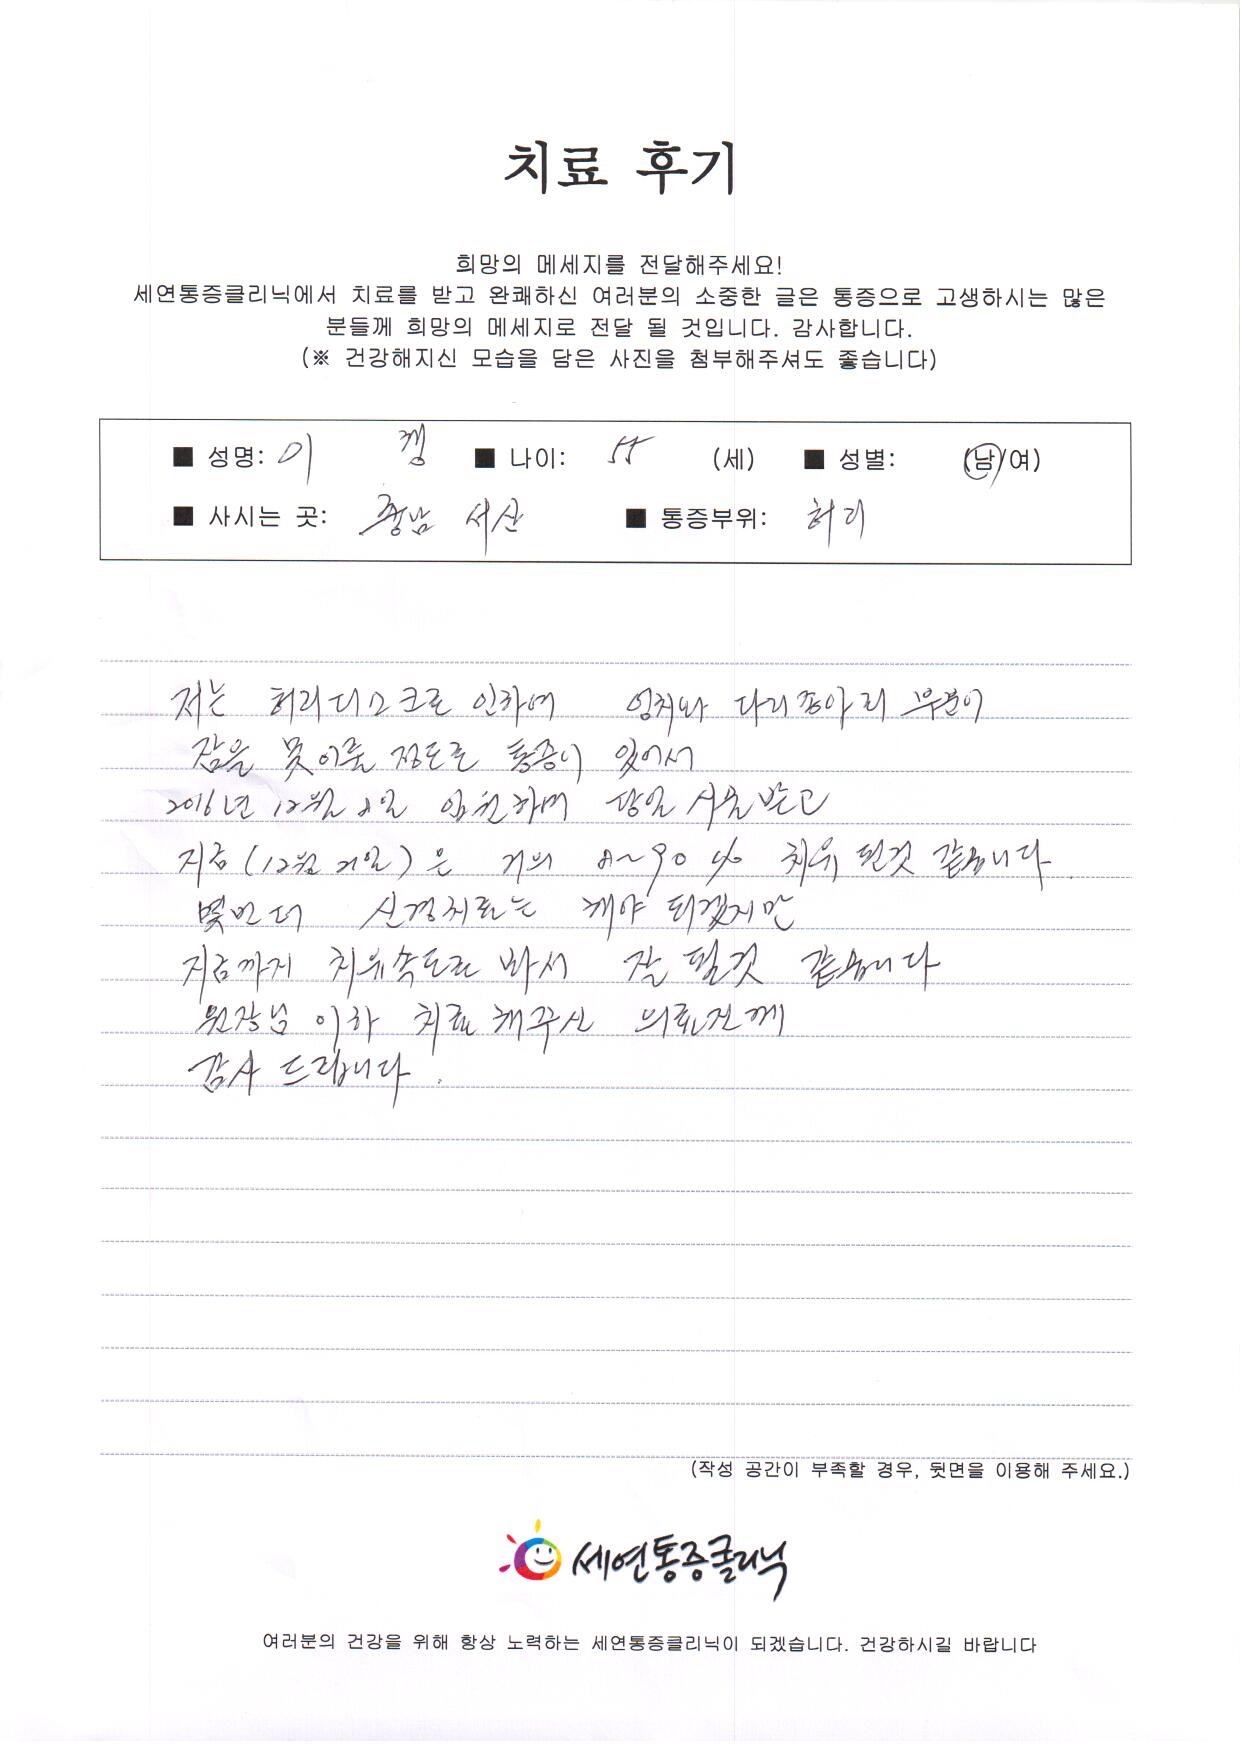 치료 후기
희망의 메세지를 전달해주세요!
세연통증클리닉에서 치료를 받고 완쾌하신 여러분의 소중한 글은 통증으로 고생하시는 많은
분들께 희망의 메세지로 전달 될 것입니다. 감사합니다.
(※ 건강해지신 모습을 담은 사진을 첨부해주셔도 좋습니다)
■ 성명: 이 ■ 나이: 55 (세) ■ 성별: (남/여)
■ 사시는 곳: 충남 서산 ■ 통증부위: 허리
저는 허리디스크로 인하여 엉치와 다리종아리 부분이
잠을 못이룰 정도로 통증이 있어서
2016년 12월 8일 입원하며 당일 시술받고
지금(12월 21일)은 거의 8~90% 치유 된것 같습니다.
몇번더 신경치료는 해야 되겠지만
지금까지 치유속도로 봐서 잘 될것 같습니다
원장님 이하 치료해주신 의료진께
감사 드립니다.
(작성 공간이 부족할 경우, 뒷면을 이용해 주세요.)
세연통증클리닉
여러분의 건강을 위해 항상 노력하는 세연통증클리닉이 되겠습니다. 건강하시길 바랍니다